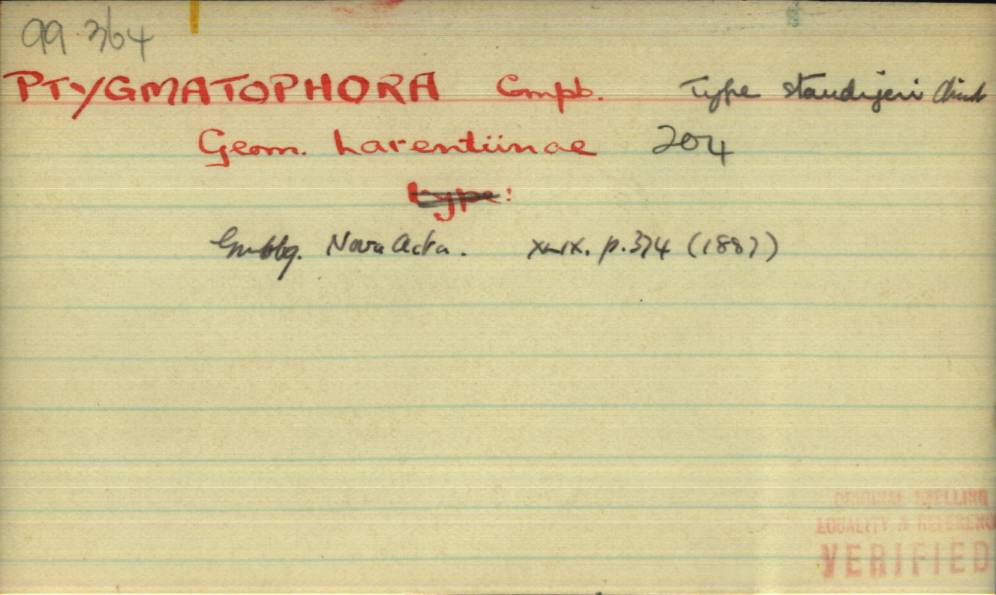 99.364
PTYGMATOPHORA Gmpb. Type staudijeri
Geom. Larentiinae 204
type:
Gmbbg. Nova Acta. xlix. p.374 (1887)
ORIGINAL SPELLING
LOCALITY & REFERENC
VERIFIED